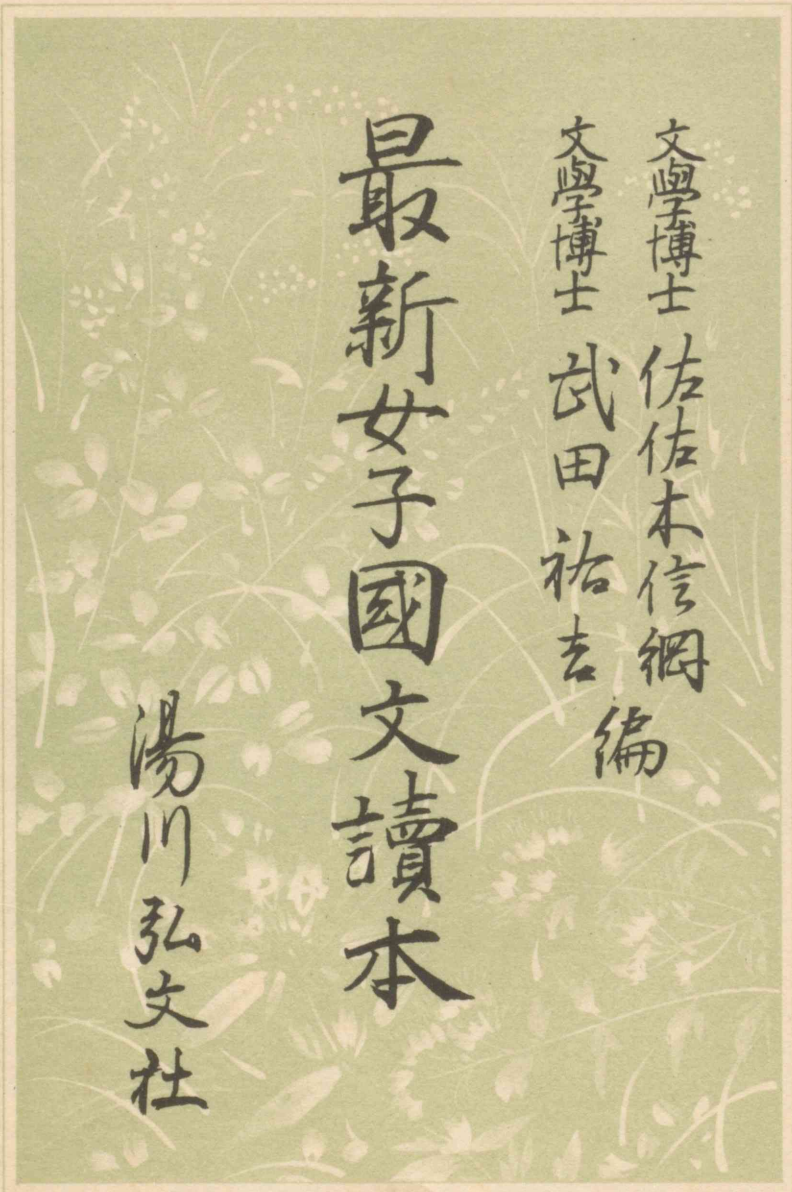 文學博士 佐佐木信綱
文學博士 武田祐吉
編
最新女子國文讀本
湯川弘文社